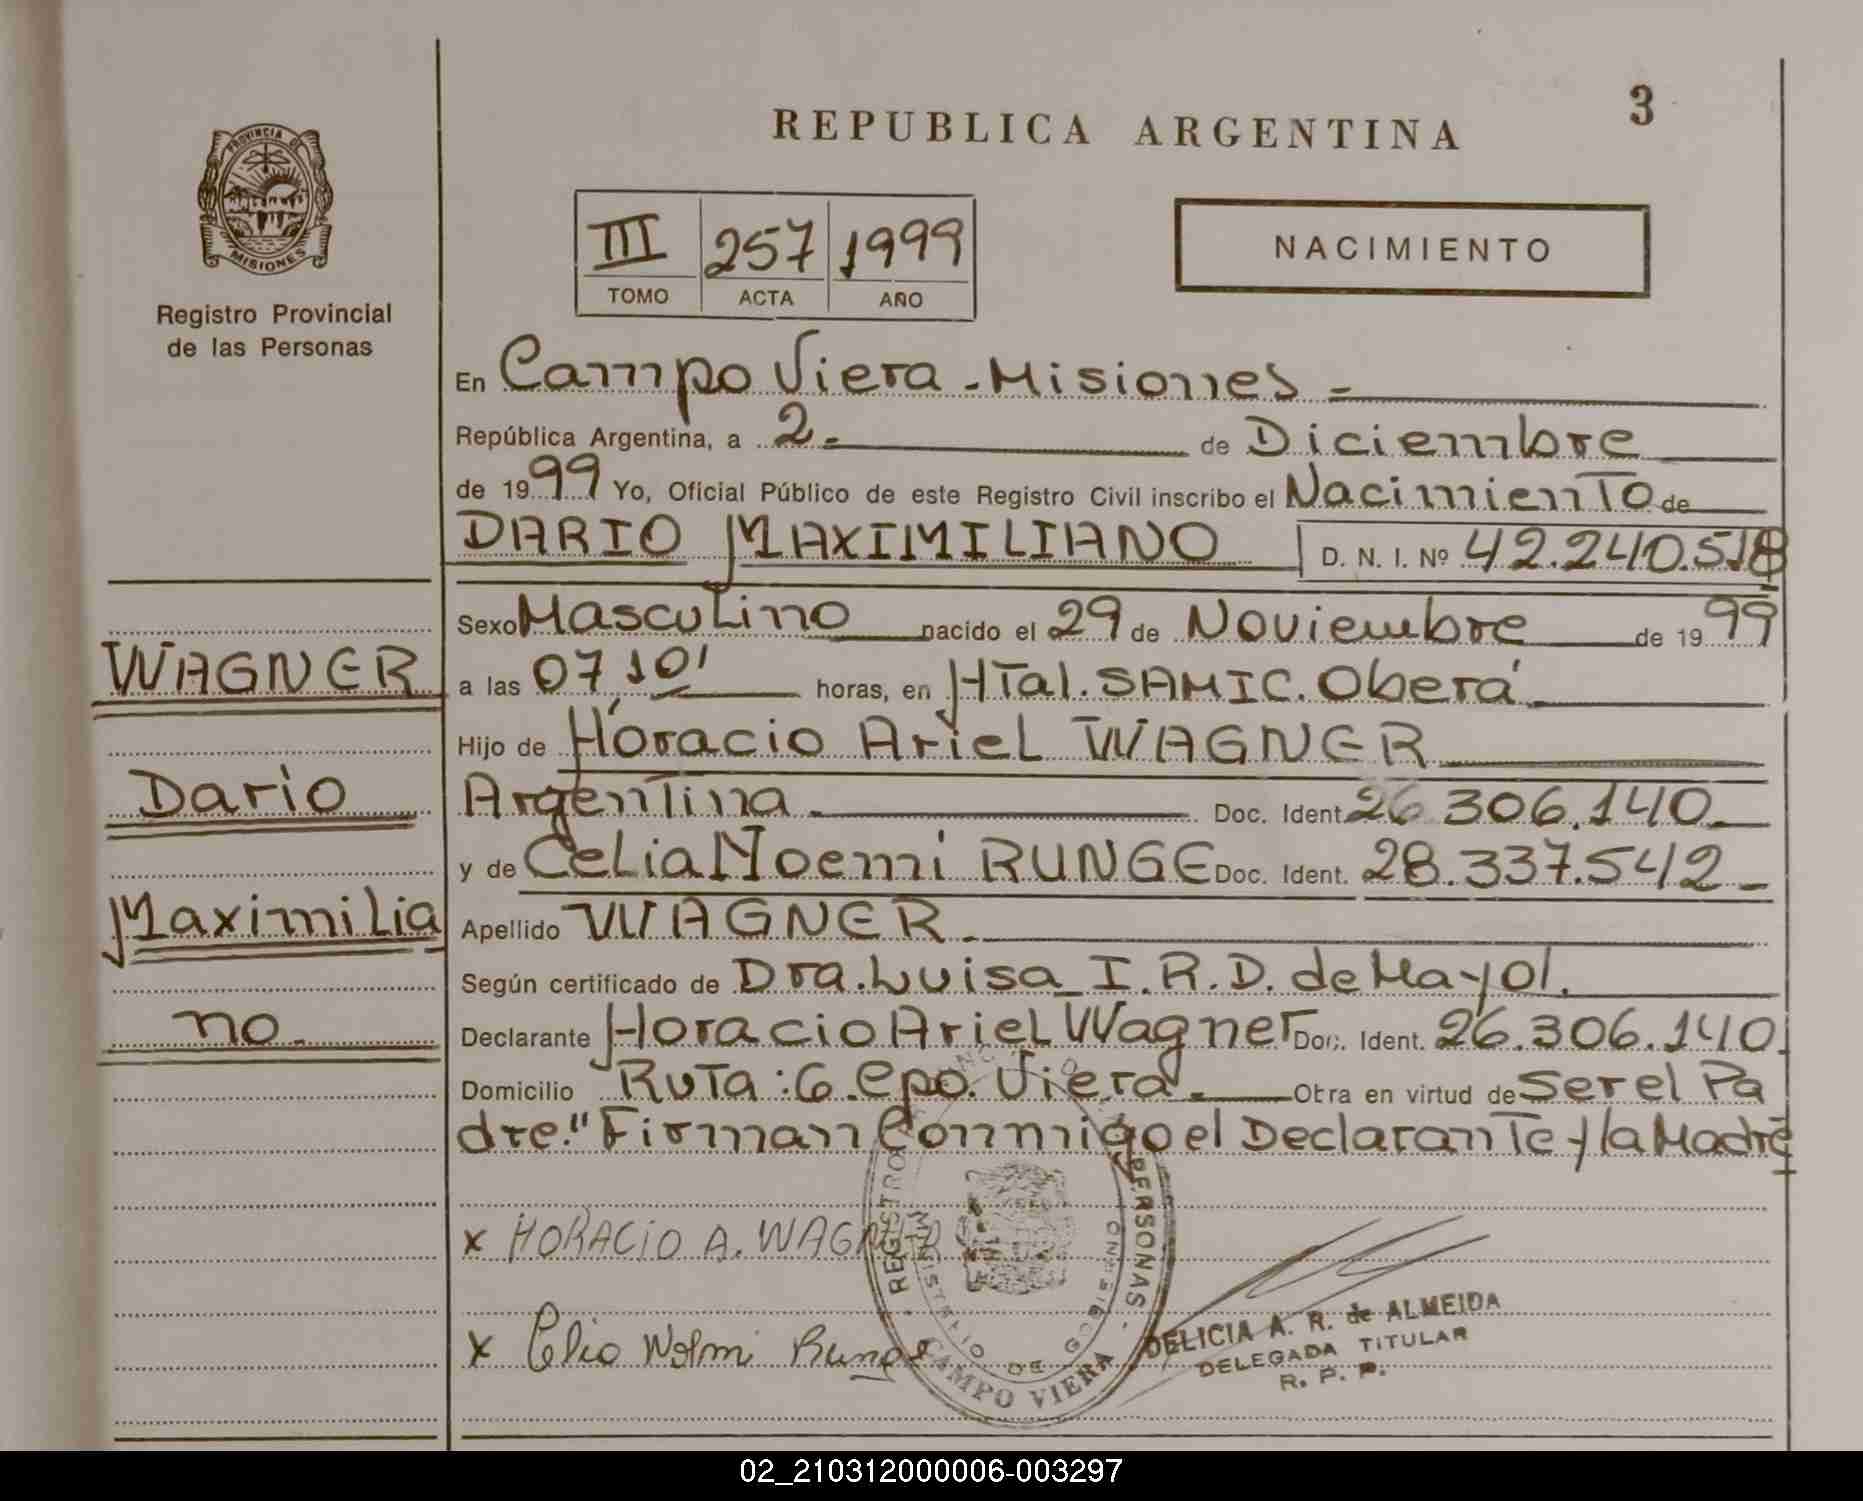 3
REPUBLICA ARGENTINA
PROVINCIA DE
MISIONES
Registro Provincial
de las Personas
III 257 1999
TOMO ACTA AÑO
NACIMIENTO
En Campo Viera - Misiones -
República Argentina, a 2.- de Diciembre
de 1999 Yo, Oficial Público de este Registro Civil inscribo el Nacimiento de
DARIO MAXIMILIANO D. N. I. Nº 42.240.518
Sexo Masculino nacido el 29 de Noviembre de 1999
a las 07,10' horas, en Htal. SAMIC. Oberá
Hijo de Horacio Ariel WAGNER
Argentina Doc. Ident. 26 306.140.-
y de Celia Noemi RUNGE Doc. Ident. 28.337.542-
Apellido WAGNER.
Según certificado de Dra. Luisa I.R.D. de Mayol.
Declarante Horacio Ariel Wagner Doc. Ident. 26.306.140.
Domicilio Ruta: 6. Cpo. Viera.- Obra en virtud de Ser el Pa
dre." Firman Conmigo el Declarante y la Madre
WAGNER
Dario
Maximilia
no.
x HORACIO A. WAGNER
x Celia Noemi Runge
REGISTRO PERSONAS
MINISTERIO DE GOBIERNO
CAMPO VIERA
DELICIA A. R. de ALMEIDA
DELEGADA TITULAR
R. P. P.
02_210312000006-003297